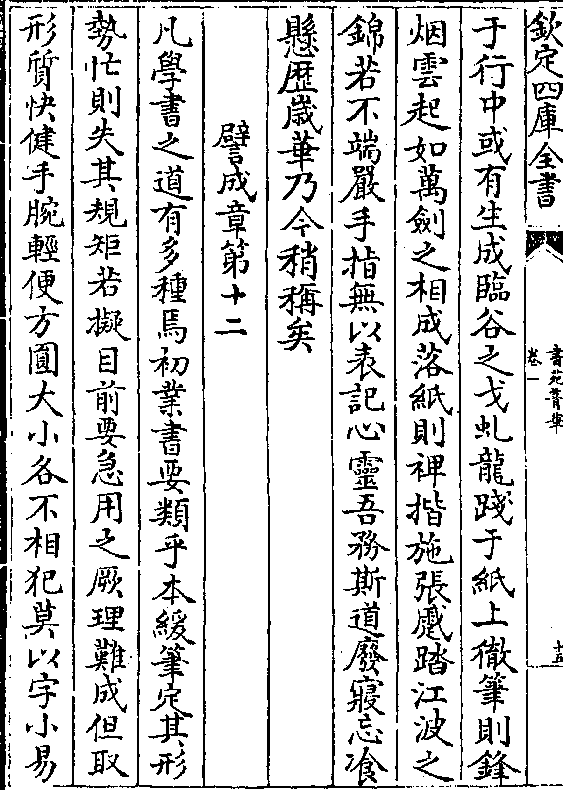 欽定四庫全書
書苑菁華
卷一
十五
于行中或有生成臨谷之戈虬龍踐于紙上徹筆則鋒
烟雲起如萬劍之相成落紙則裨揩施張蹙踏江波之
錦若不端嚴手指無以表記心靈吾務斯道廢寢忘飡
懸歴歳華乃今稍稱矣
譬成章第十二
凡學書之道有多種焉初業書要類乎本緩筆定其形
勢忙則失其規矩若擬目前要急用之厥理難成但取
形質快健手腕輕便方圓大小各不相犯莫以字小易